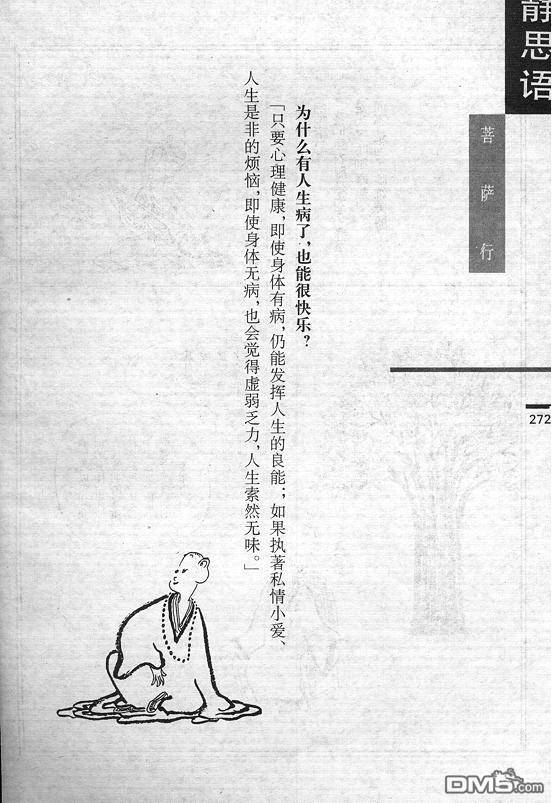 静思语
菩萨行
272
为什么有人生病了，也能很快乐？
「只要心理健康，即使身体有病，仍能发挥人生的良能；如果执著私情小爱、
人生是非的烦恼，即使身体无病，也会觉得虚弱乏力，人生索然无味。」
DM5.com